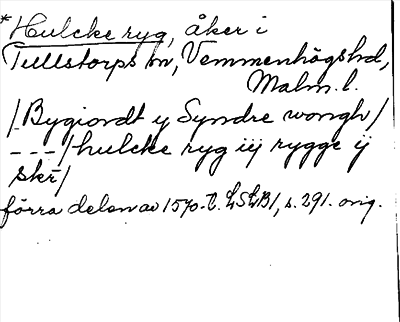 *Hulcke ryg, åker i
Tullstorps sn, Vemmenhögs hd,
Malm. l.
/Bygiordt y Syndre wongh/
---/hulcke ryg iij rygge ij
skr/
förra delen av 1570-t. LSLB1, s. 291. orig.